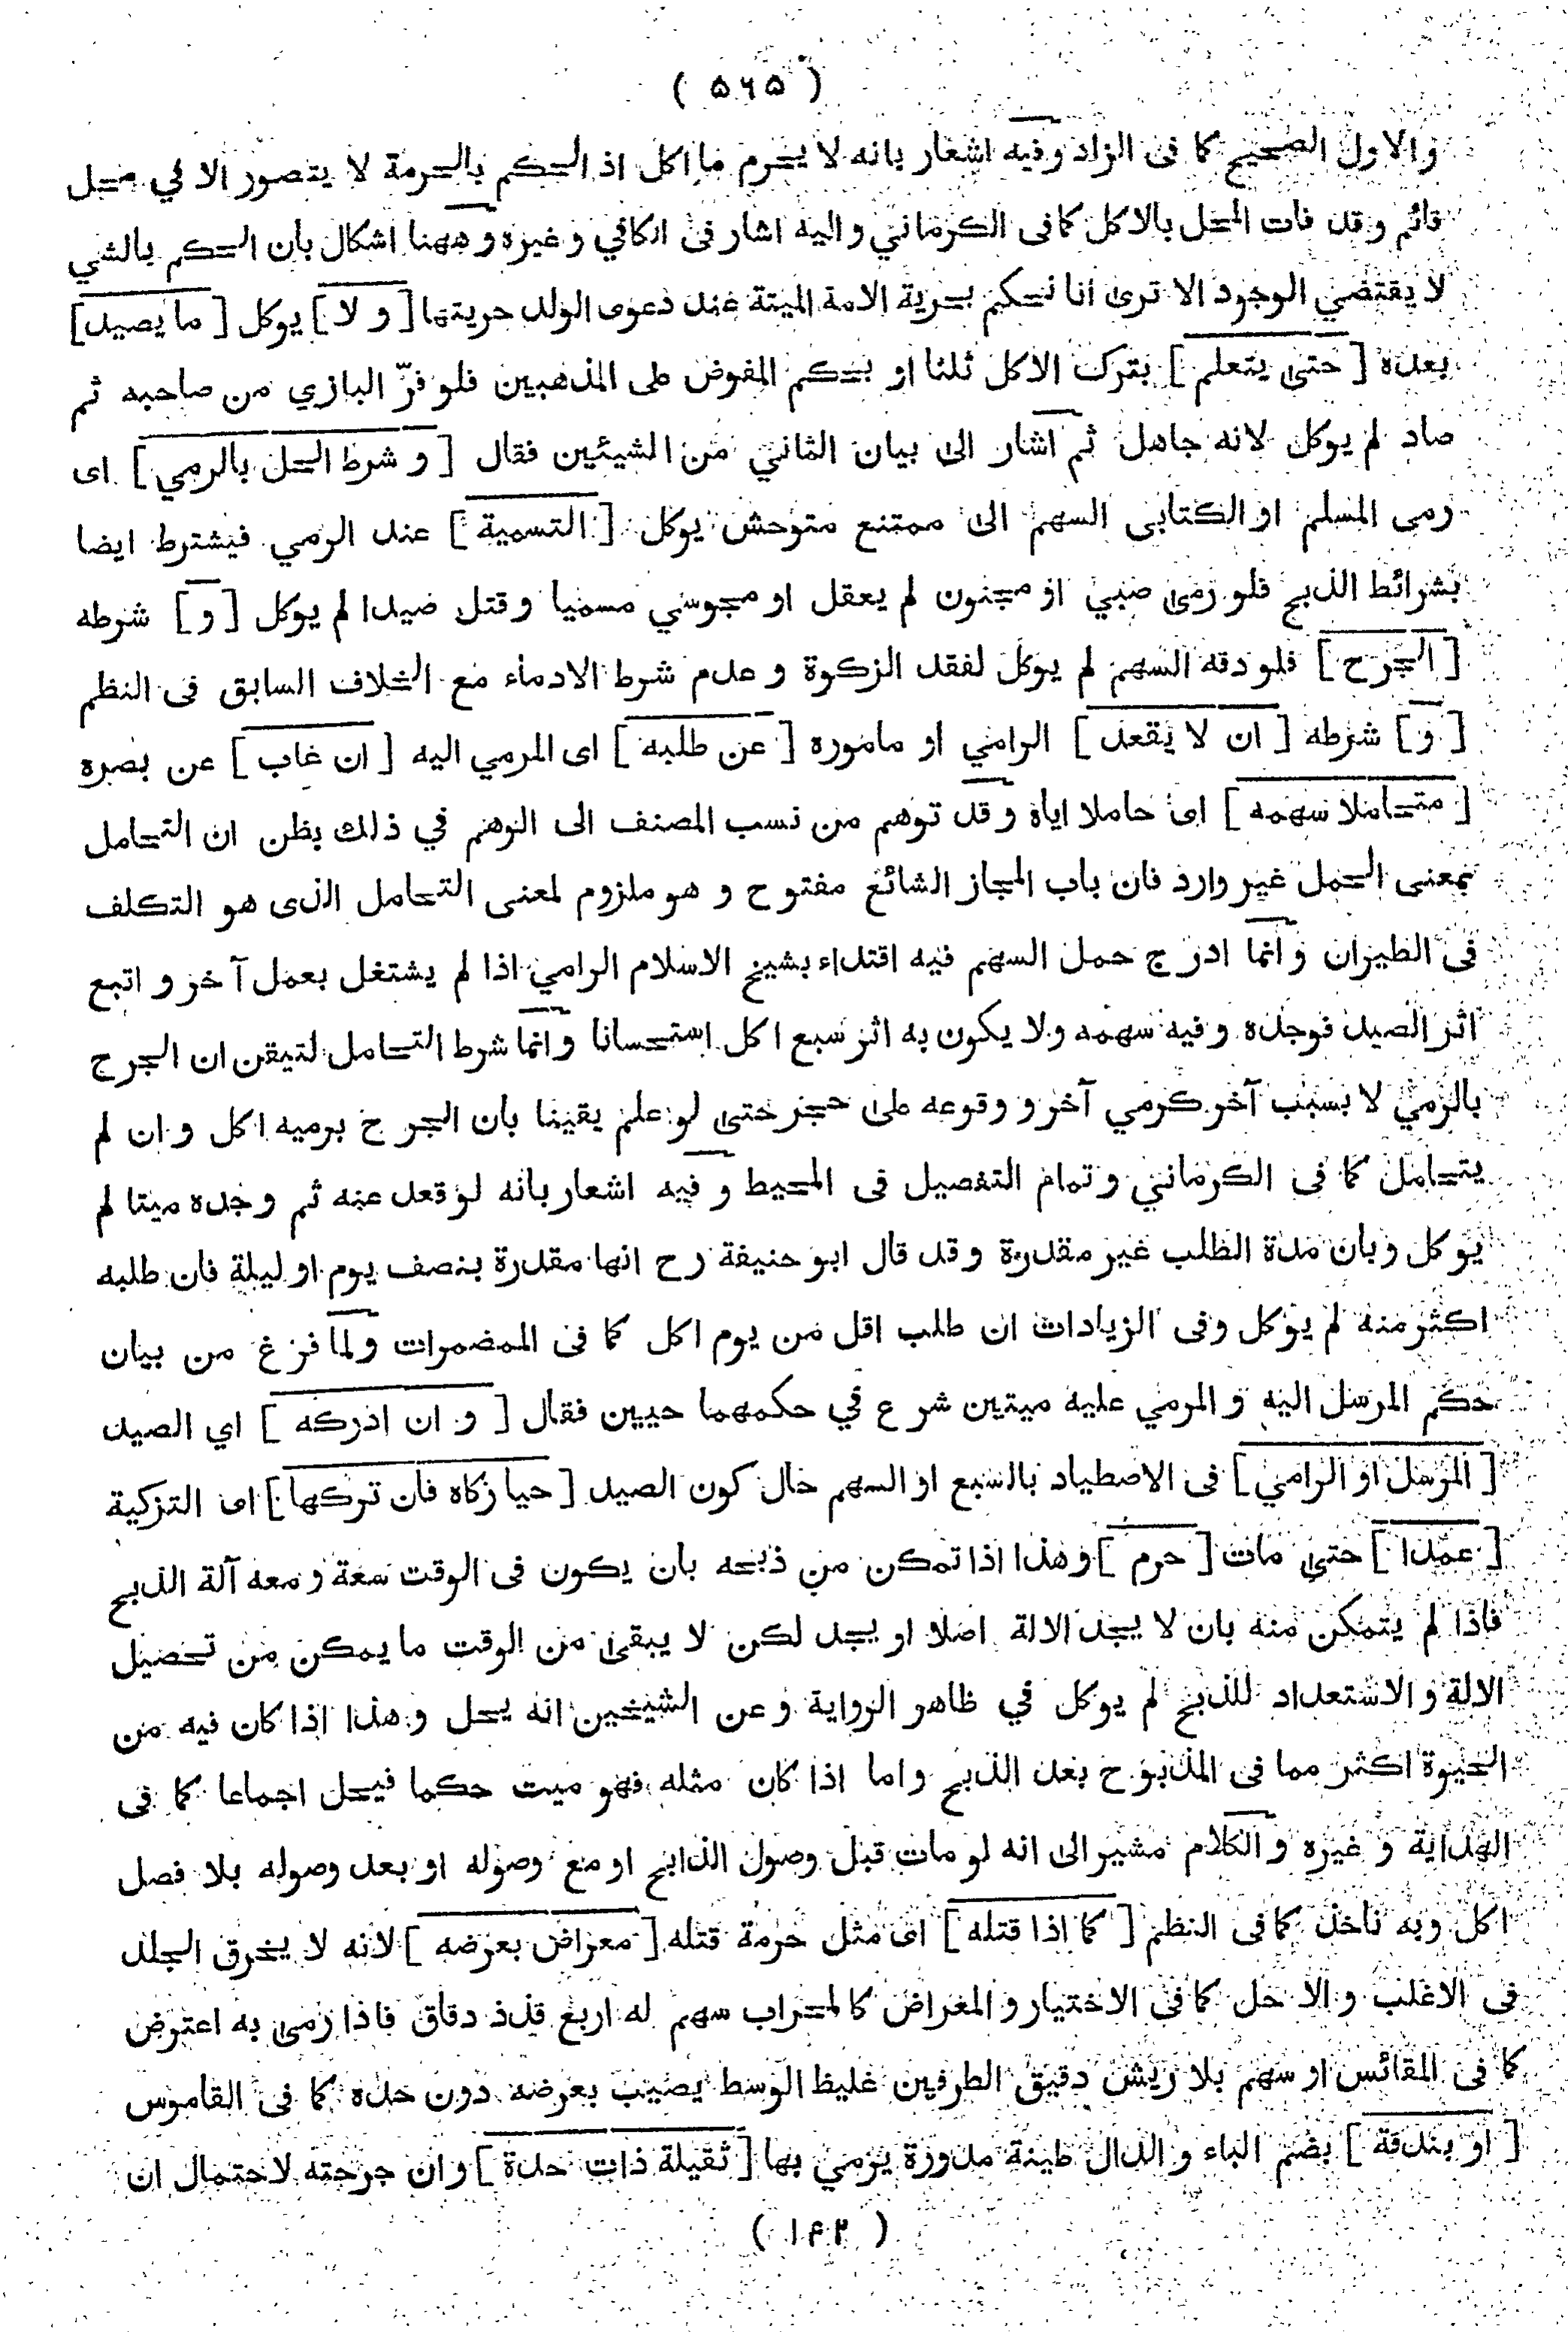 ( ۵۶۵ )
والاول الصحيح كما فى الزاد وفيه اشعار بانه لا يحرم ما اكل اذ الحكم بالحرمة لا يتصور الا في محل
قائم وقد فات المحل بالاكل كما فى الكرماني واليه اشار فى الكافي وغيره وههنا اشكال بان الحكم بالشي
لا يقتضي الوجود الا ترى انا نحكم بحرية الامة الميتة عند دعوى الولد حريتها [ و لا ] يوكل [ ما يصيد ]
بعده [ حتى يتعلم ] بترك الاكل ثلثا او بحكم المفوض على المذهبين فلو فرّ البازي من صاحبه ثم
صاد لم يوكل لانه جاهل ثم اشار الى بيان الثاني من الشيئين فقال [ و شرط الحل بالرمي ] اى
رمى المسلم او الكتابى السهم الى ممتنع متوحش يوكل [ التسمية ] عند الرمي فيشترط ايضا
بشرائط الذبح فلو رمى صبي او مجنون لم يعقل او مجوسي مسميا وقتل صيدا لم يوكل [ و ] شرطه
[ الجرح ] فلو دقه السهم لم يوكل لفقد الزكوة و عدم شرط الادماء مع الخلاف السابق فى النظم
[ و ] شرطه [ ان لا يقعد ] الرامي او ماموره [ عن طلبه ] اى المرمي اليه [ ان غاب ] عن بصره
[ متحاملا سهمه ] اى حاملا اياه وقد توهم من نسب المصنف الى الوهم في ذلك بظن ان التحامل
بمعنى الحمل غير وارد فان باب المجاز الشائع مفتوح و هو ملزوم لمعنى التحامل الذى هو التكلف
فى الطيران وانما ادرج حمل السهم فيه اقتداء بشيخ الاسلام الرامي اذا لم يشتغل بعمل آخر و اتبع
اثر الصيد فوجده وفيه سهمه ولا يكون به اثر سبع اكل استحسانا وانما شرط التحامل لتيقن ان الجرح
بالرمي لا بسبب آخر كرمي آخر و وقوعه على حجر حتى لو علم يقينا بان الجرح برميه اكل و ان لم
يتحامل كما فى الكرماني وتمام التفصيل فى المحيط وفيه اشعار بانه لو قعد عنه ثم وجده ميتا لم
يوكل وبان مدة الطلب غير مقدرة وقد قال ابو حنيفة رح انها مقدرة بنصف يوم او ليلة فان طلبه
اكثر منه لم يوكل وفى الزيادات ان طلب اقل من يوم اكل كما فى المضمرات ولما فرغ من بيان
حكم المرسل اليه و المرمي عليه ميتين شرع في حكمهما حيين فقال [ و ان ادركه ] اي الصيد
[ المرسل او الرامي ] فى الاصطياد بالسبع او السهم حال كون الصيد [ حيا زكاه فان تركها ] اى التزكية
[ عمدا ] حتى مات [ حرم ] وهذا اذا تمكن من ذبحه بان يكون فى الوقت سعة ومعه آلة الذبح
فاذا لم يتمكن منه بان لا يجد الالة اصلا او يجد لكن لا يبقى من الوقت ما يمكن من تحصيل
الالة و الاستعداد للذبح لم يوكل في ظاهر الرواية وعن الشيخين انه يحل و هذا اذا كان فيه من
الحيوة اكثر مما فى المذبوح بعد الذبح واما اذا كان مثله فهو ميت حكما فيحل اجماعا كما فى
الهداية و غيره و الكلام مشير الى انه لو مات قبل وصول الذابح او مع وصوله او بعد وصوله بلا فصل
اكل وبه ناخذ كما فى النظم [ كما اذا قتله ] اى مثل حرمة قتله [ معراض بعرضه ] لانه لا يخرق الجلد
فى الاغلب و الا حل كما فى الاختيار و المعراض كالمحراب سهم له اربع قذذ دقاق فاذا رمى به اعترض
كما فى المقائس او سهم بلا ريش دقيق الطرفين غليظ الوسط يصيب بعرضه دون حده كما فى القاموس
[ او بندقة ] بضم الباء و الدال طينة مدورة يرمي بها [ ثقيلة ذات حدة ] وان جرحته لاحتمال ان
( ۱۴۲ )